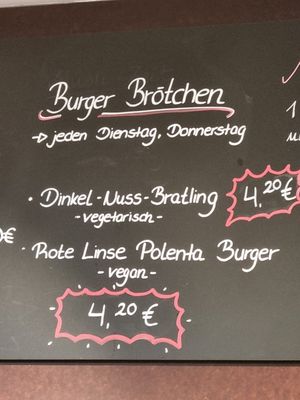 Burger Brötchen
→ jeden Dienstag, Donnerstag
• Dinkel-Nuss-Bratling 4,20€
- vegetarisch -
• Rote Linse Polenta Burger
- vegan -
4,20€